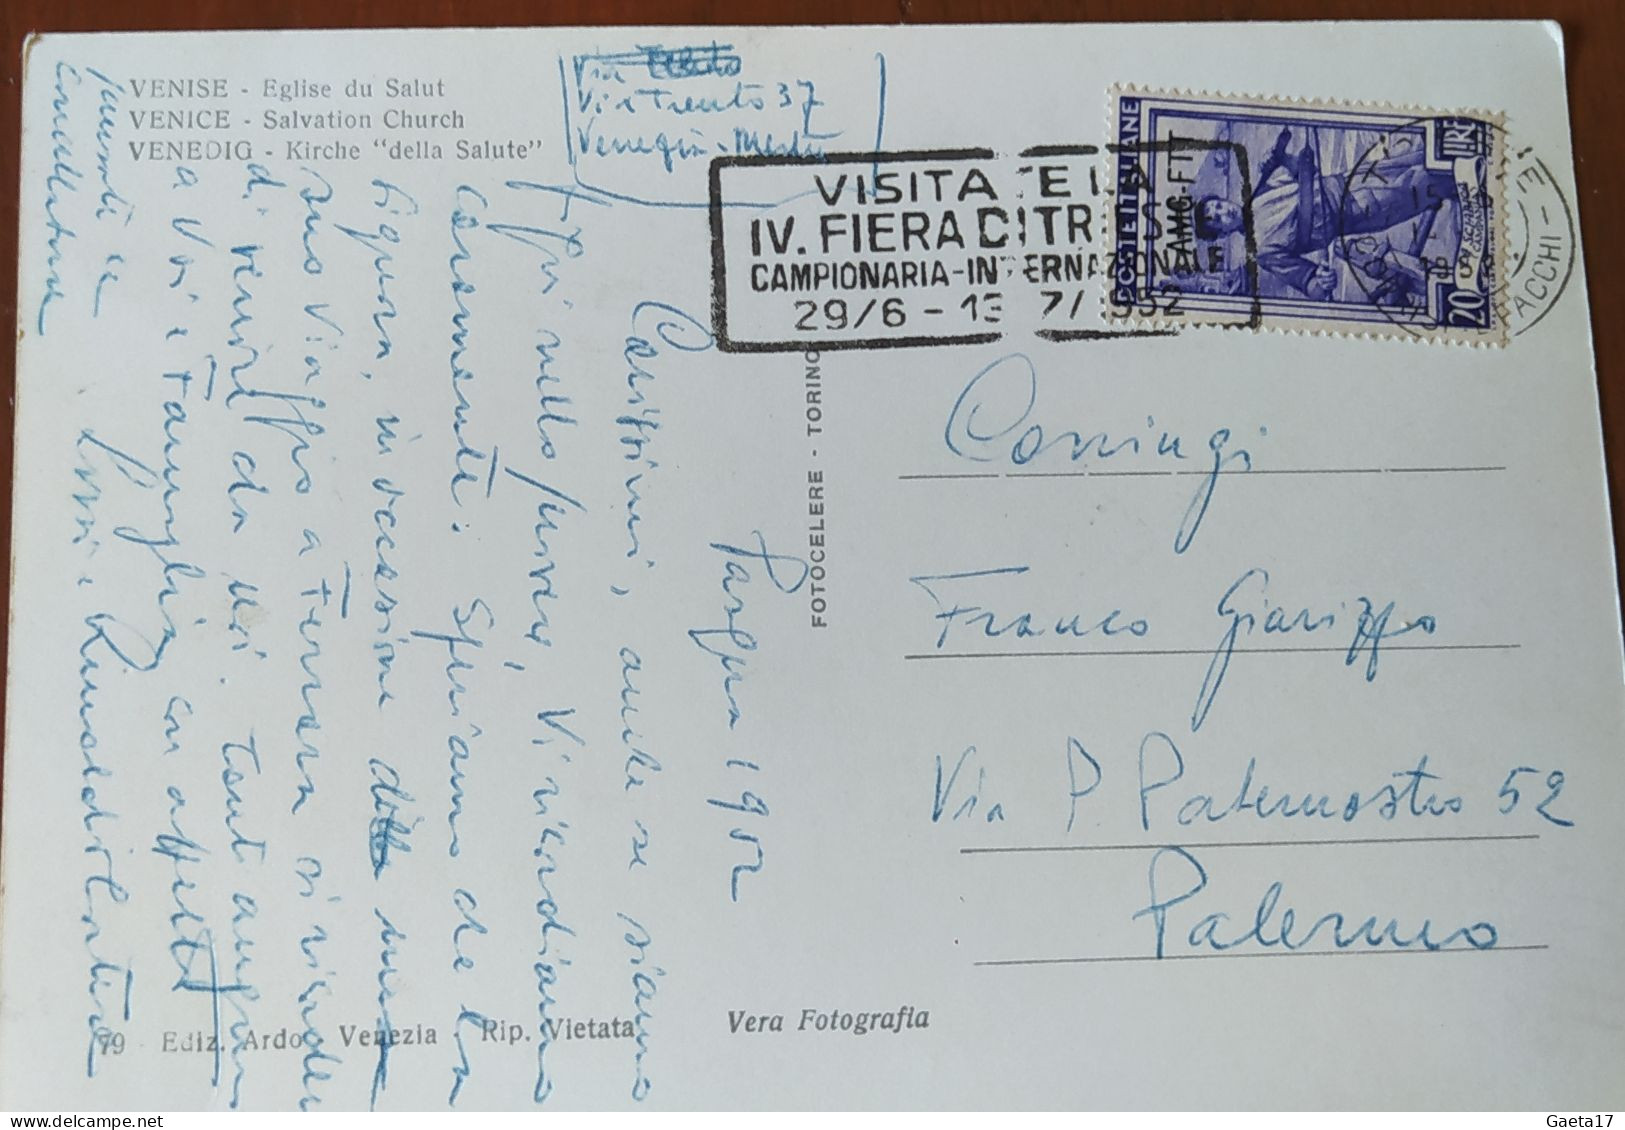 VENISE - Eglise du Salut
VENICE - Salvation Church
VENEDIG - Kirche "della Salute"
Via
Via Trento 37
Venezia - Mestre
VISITATE LA
IV. FIERA DI TRIESTE
CAMPIONARIA-INTERNAZIONALE
29/6 - 13/7/1952
POSTE ITALIANE
LIRE
20
AMG-FTT
Pasqua 1952
Carissimi, anche se siamo
pigri nello scrivere, Vi ricordiamo
caramente. Speriamo che la
Signora, in occasione del
suo viaggio a Ferrara si ricordi
di venire da noi. Tanti auguri
a Voi e Famiglia con affetto
FOTOCELERE - TORINO
Coniugi
Franco Giarizzo
Via P. Paternostro 52
Palermo
79 - Ediz. Ardo - Venezia - Rip. Vietata
Vera Fotografia
Gaeta17